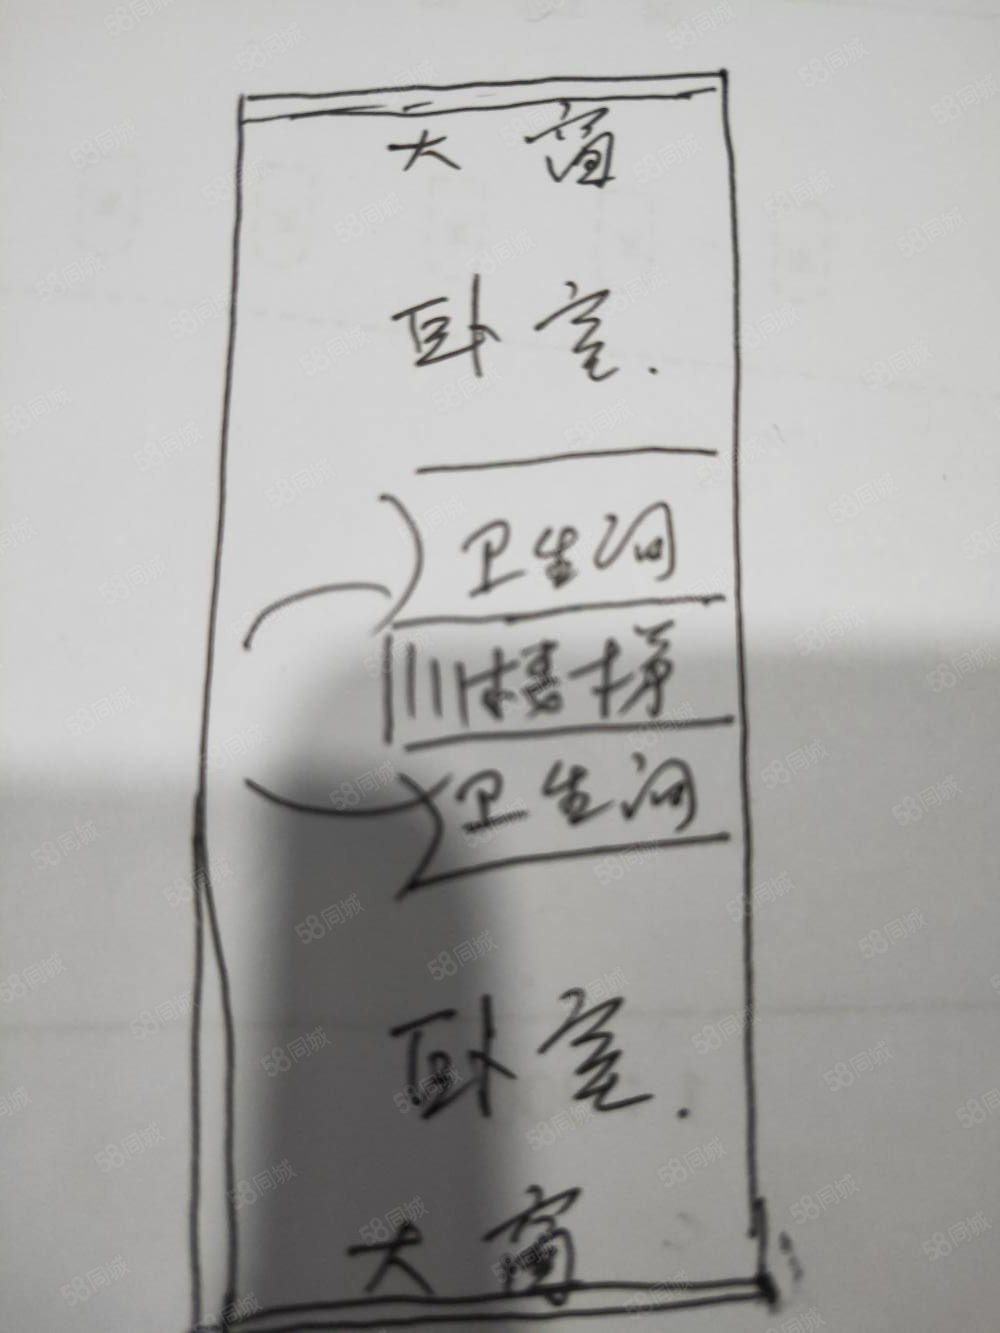 大窗
卧室.
卫生间
楼梯
卫生间
卧室.
大窗
58同城